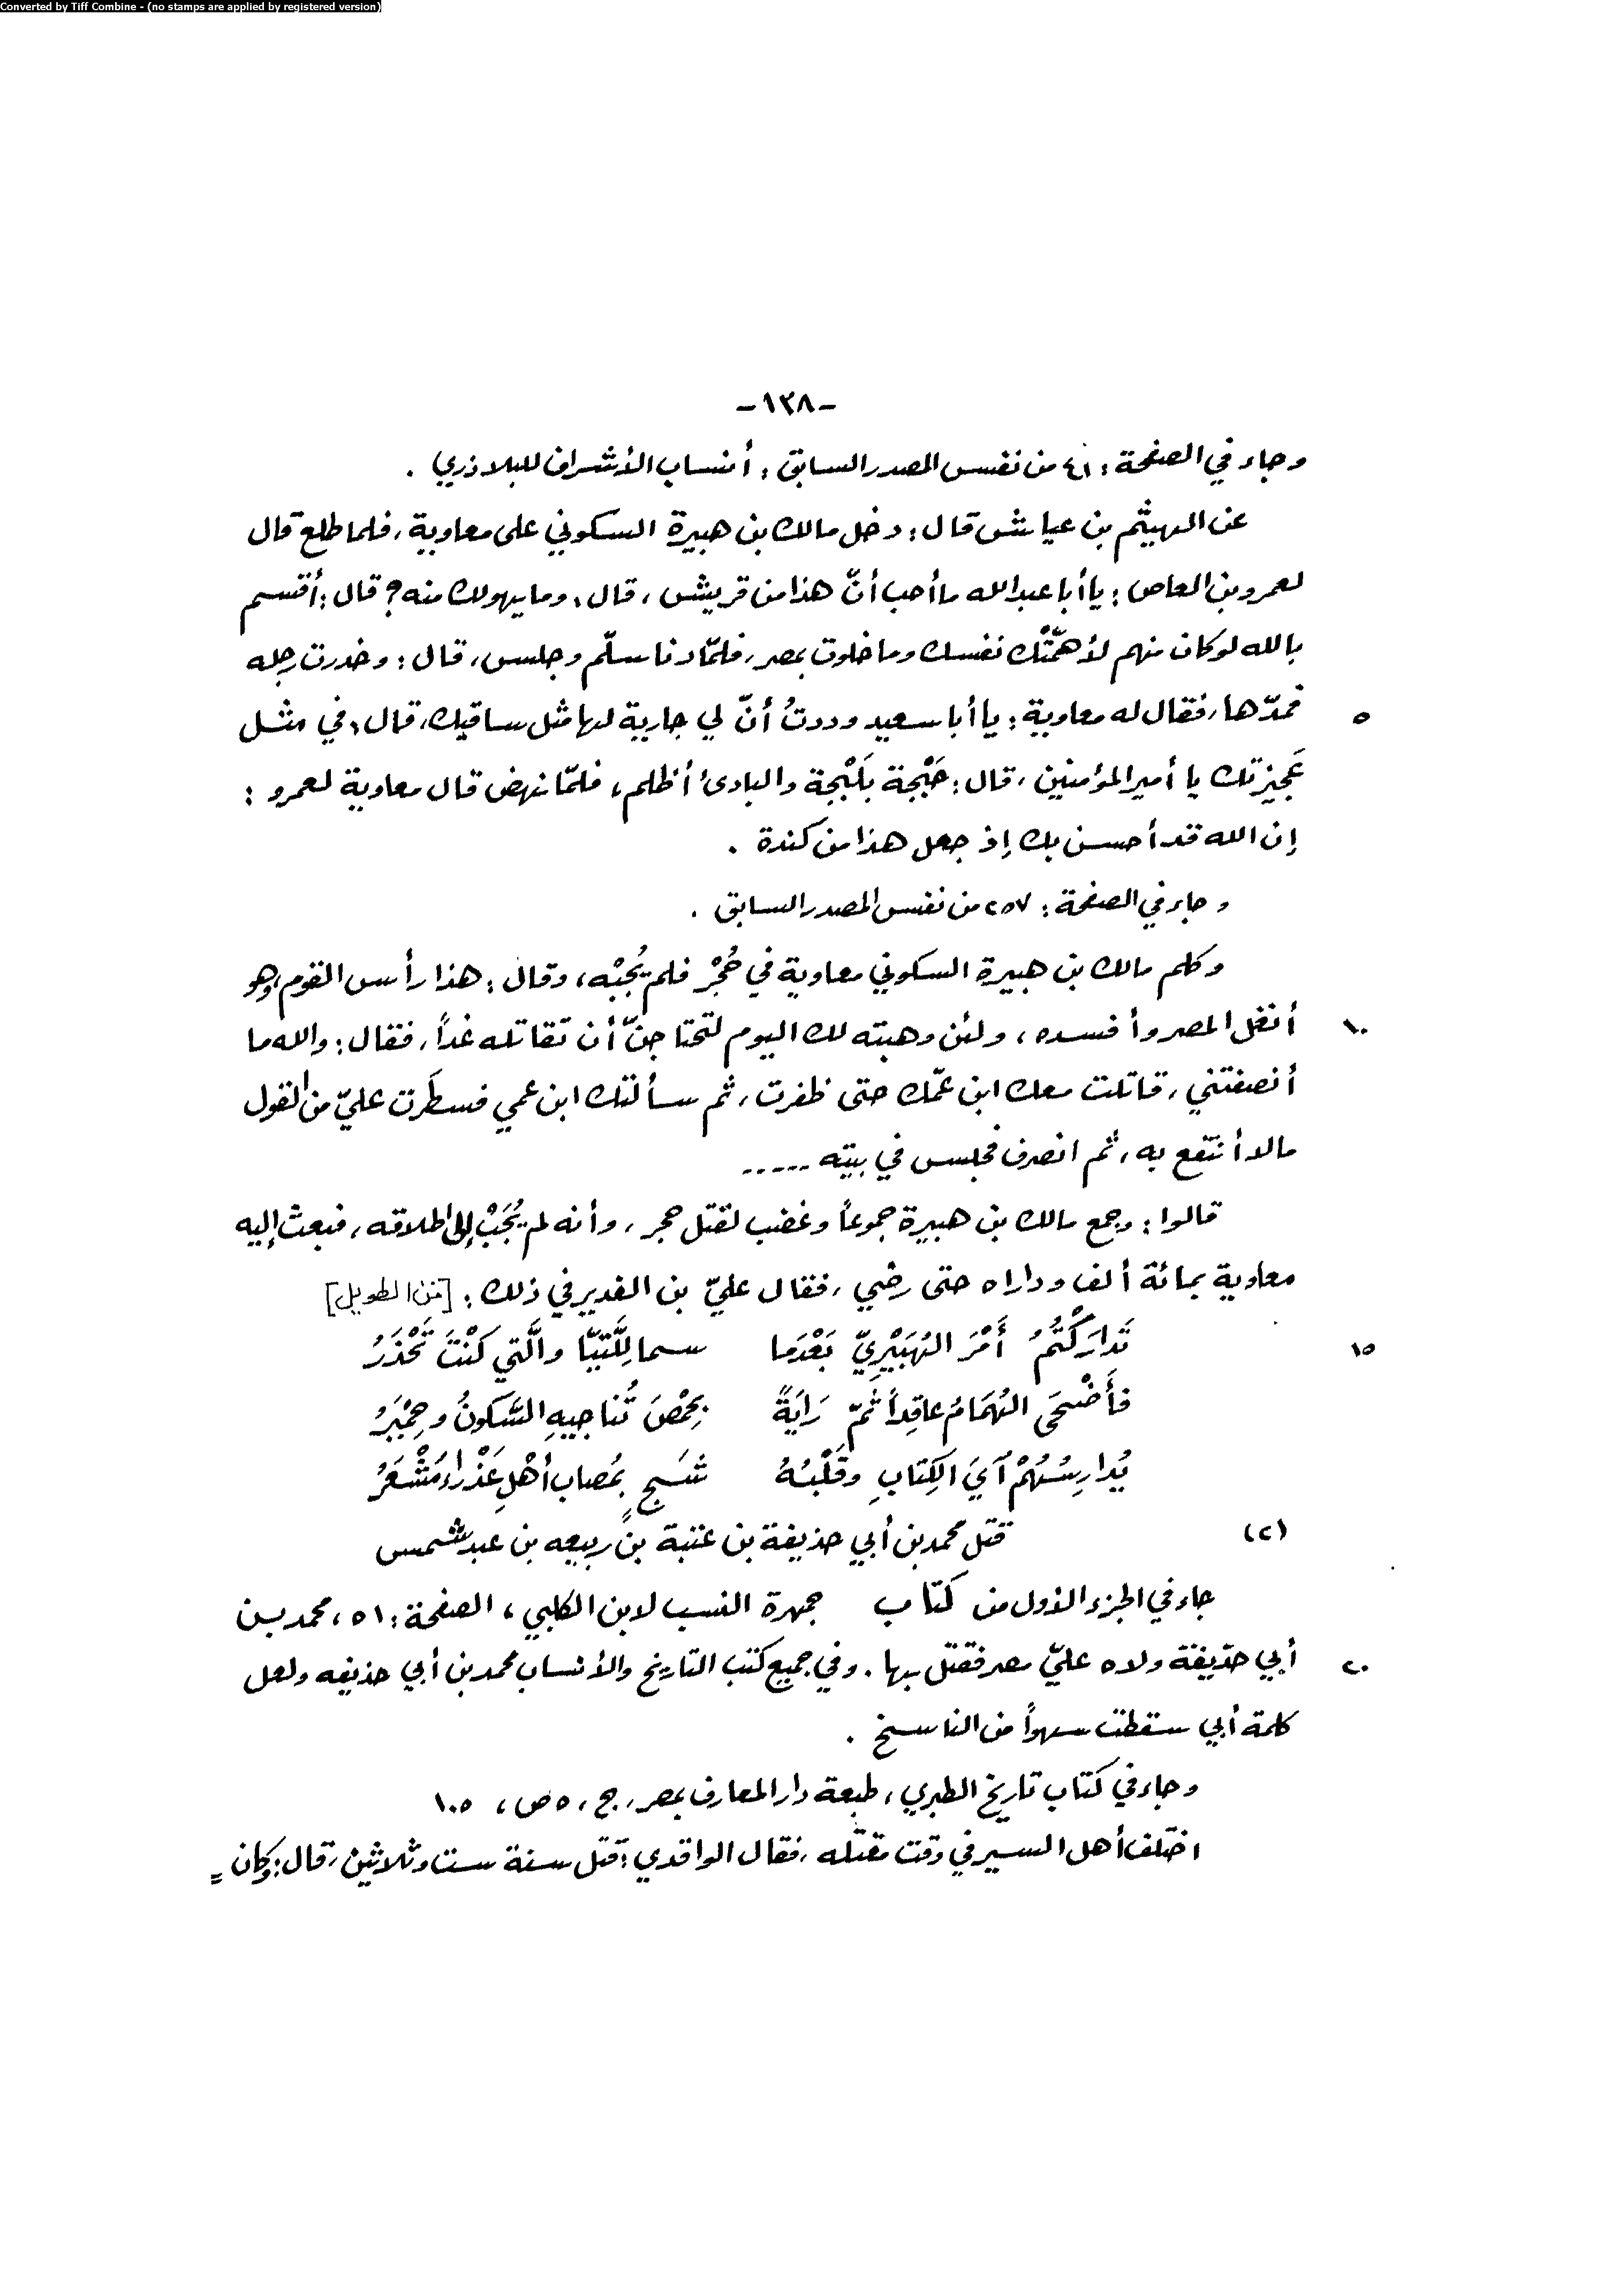 Converted by Tiff Combine - (no stamps are applied by registered version)
-١٣٨-
وجاء في الصفحة: ٤١ من نفس المصدر السابق: أنساب الأشراف للبلاذري .
عن الهيثم بن عياش قال: دخل مالك بن هبيرة السكوني على معاوية، فلما طلع قال
لعمرو بن العاص: يا أبا عبدالله ما أحب أنّ هذا من قريش، قال: وما يهولك منه؟ قال: أقسم
بالله لو كان منهم لأهمّتْك نفسك وما خلوت بمصر، فلمّا دنا سلّم وجلس، قال: وخدرت رجله
٥ فمدّها، فقال له معاوية: يا أبا سعيد وددتُ أنّ لي جارية لها مثل ساقيك، قال: في مثل
عَجيزتك يا أمير المؤمنين، قال: حَبْجة بَلَبْجة والبادئ أظلم، فلمّا نهض قال معاوية لعمرو:
إن الله قد أحسن بك إذ جعل هذا من كندة .
وجاء في الصفحة: ٢٥٧ من نفس المصدر السابق .
وكلم مالك بن هبيرة السكوني معاوية في حُجْر فلم يُجبْه، وقال: هذا رأس القوم وهو
١٠ أنغل المصر وأفسده، ولئن وهبته لك اليوم لتحتاجنّ أن تقاتله غداً، فقال: والله ما
أنصفتني، قاتلت معك ابن عمّك حتى ظفرت، ثم سألتك ابن عمي فسطَرت عليّ من القول
مالا أنتفع به، ثم انصرف فجلس في بيته -----
قالوا: وجمع مالك بن هبيرة جموعاً وغضب لقتل حجر، وأنه لم يُجَبْ إلى إطلاقه، فبعث إليه
معاوية بمائة ألف وداراه حتى رضي، فقال عليّ بن الغدير في ذلك: [من الطويل]
١٥ تَدارَكْتُمُ أَمْرَ الهُبَيْرِيّ بَعْدَما سما لِلَّتيّا والَّتي كنْتَ تَحْذَرُ
فأَضْحَى الهُمَامُ عاقِداً ثَمّ رَايَةً بِحِمْصَ تُناجيهِ السَّكونُ وحِمْيَرُ
يُدارِسُهُمْ آيَ الكِتابِ وقَلْبُهُ شَجٍ بمُصاب أهْلِ عَذْراءَ مُشْعَرُ
(٢) قتل محمد بن أبي حذيفة بن عتبة بن ربيعه بن عبد شمس
جاء في الجزء الأول من كتاب جمهرة النسب لابن الكلبي، الصفحة: ٥١، محمد بن
٢٠ أبي حذيفة ولاه عليّ مصر فقتل بها. وفي جميع كتب التاريخ والأنساب محمد بن أبي حذيفه ولعل
كلمة أبي سقطت سهواً من الناسخ .
وجاء في كتاب تاريخ الطبري، طبعة دار المعارف بمصر، ج، ٥ ص، ١٠٥
اختلف أهل السير في وقت مقتله، فقال الواقدي: قتل سنة ست وثلاثين، قال: وكان =